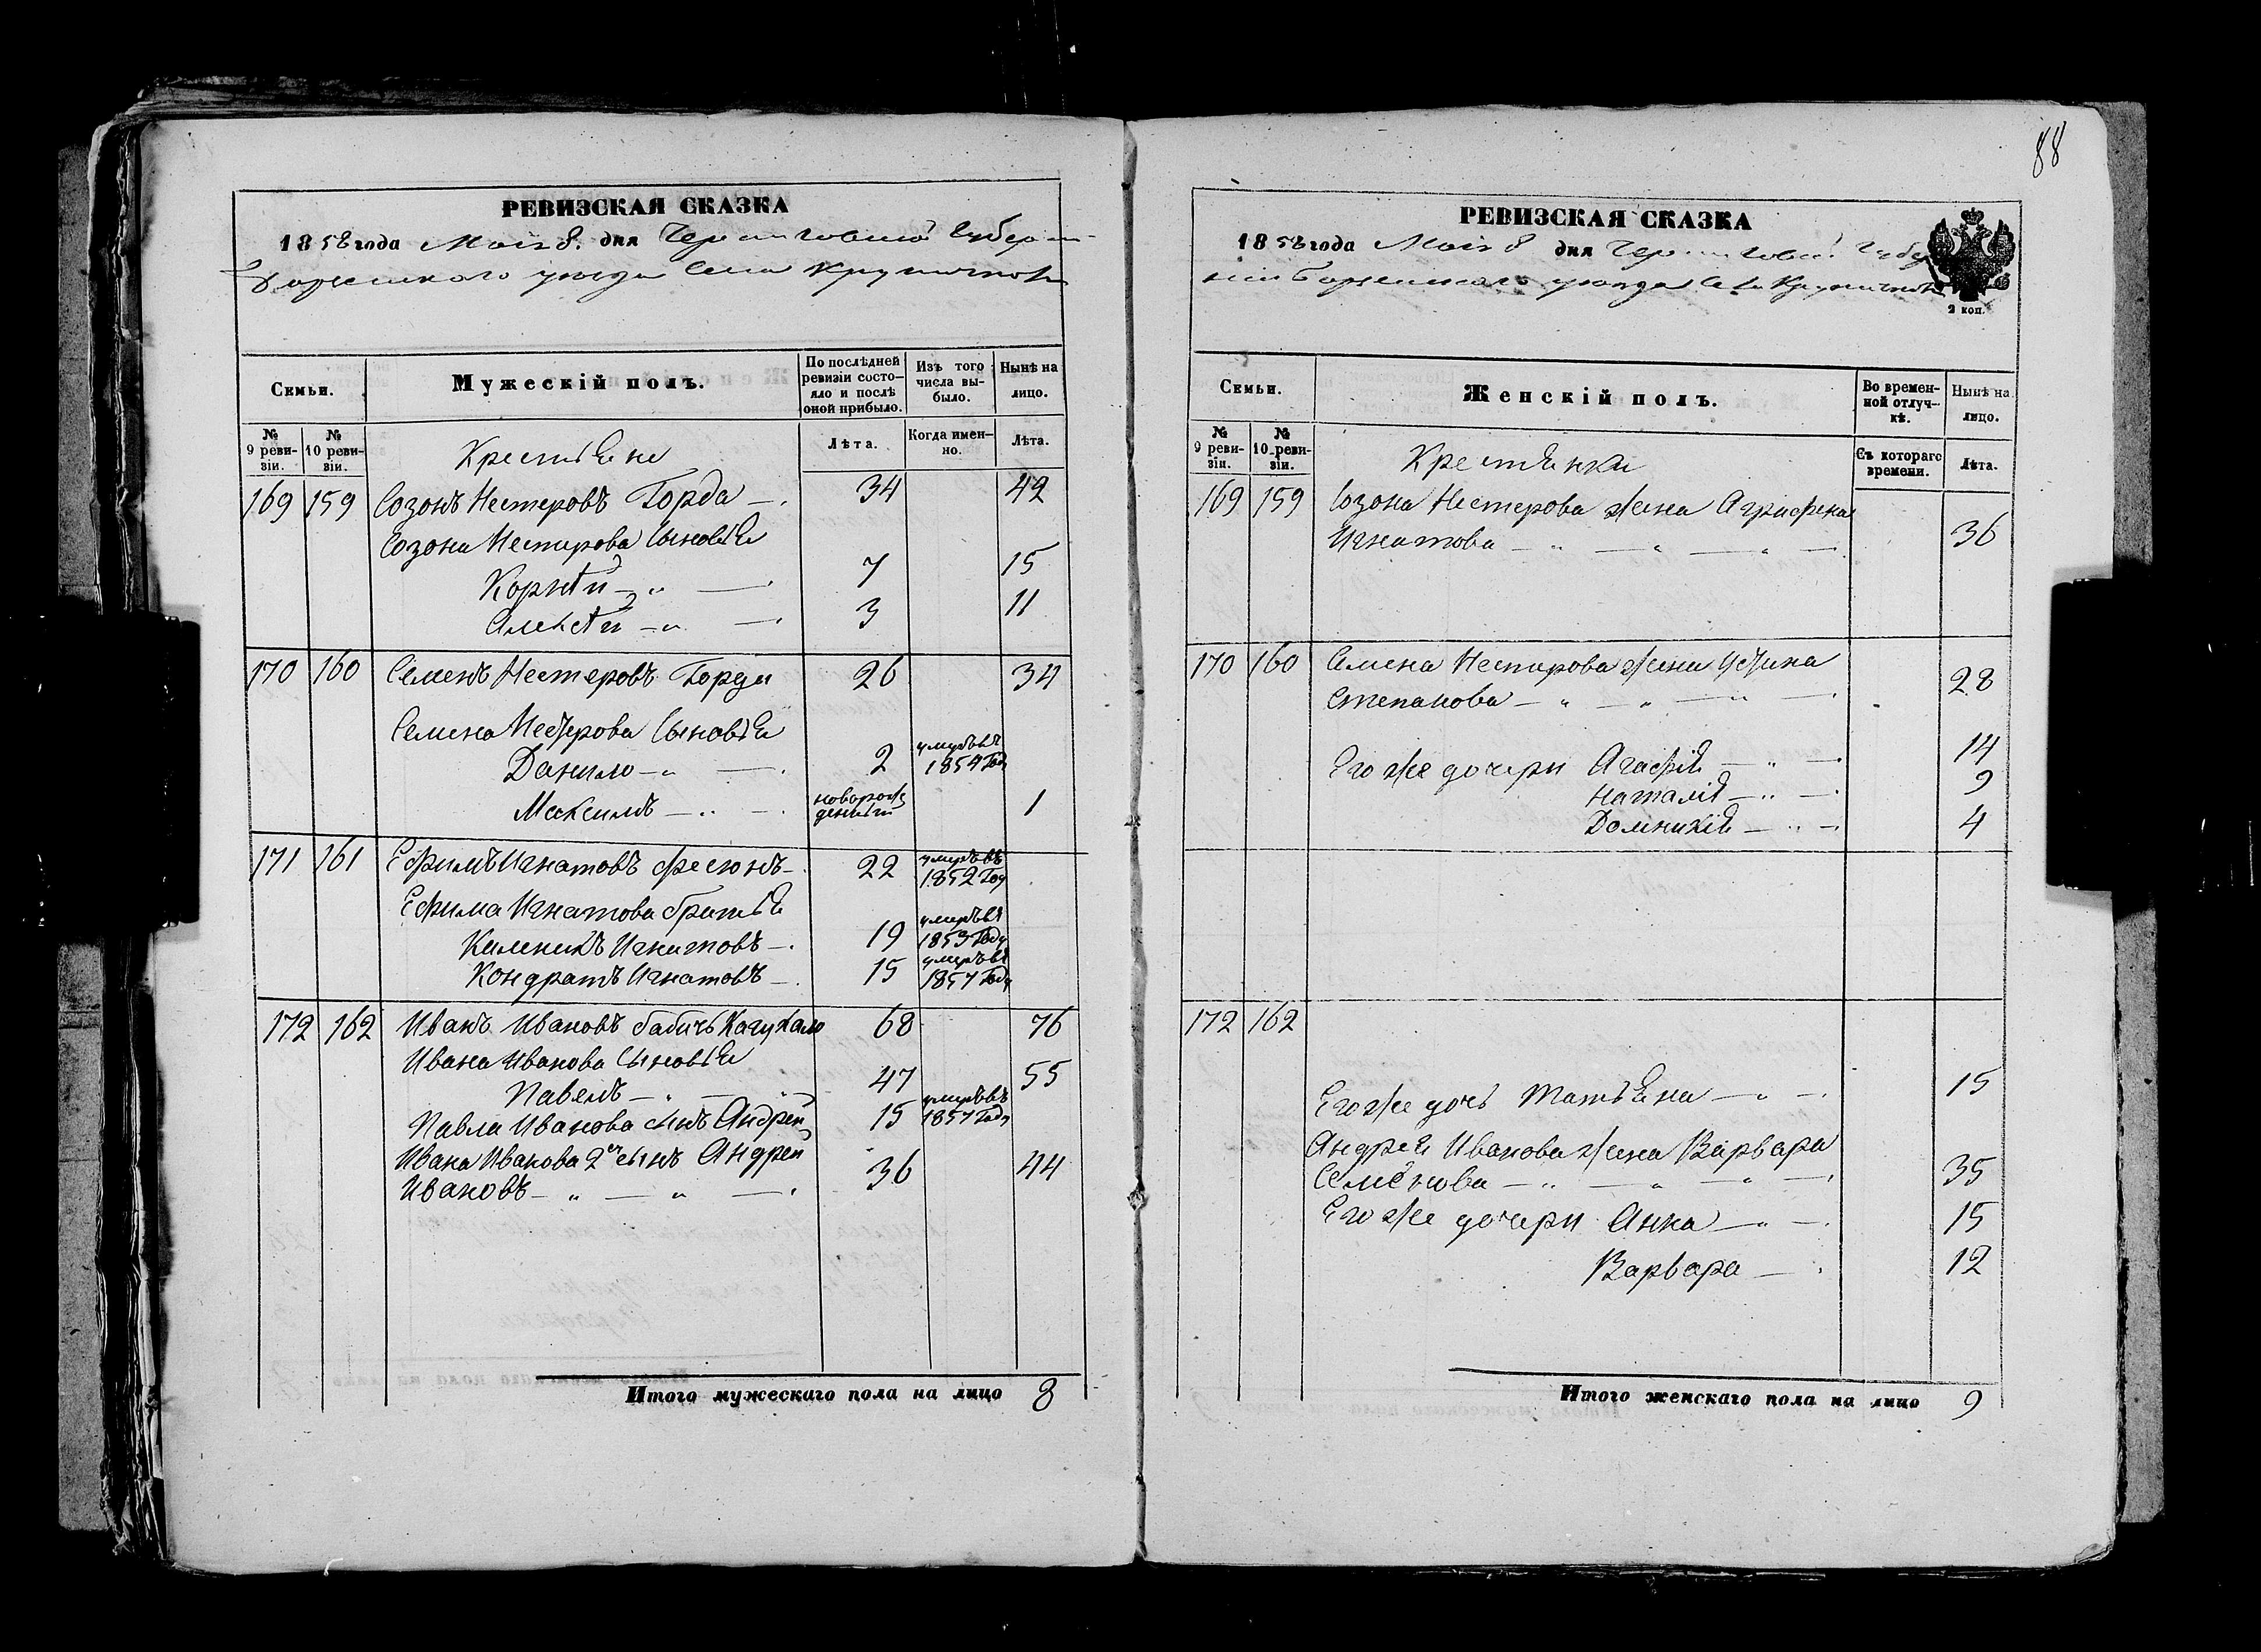 88
РЕВИЗСКАЯ СКАЗКА
1858 года Мая 8. дня Черниговской Губерніи
Борзенского уезда Села Крупичполя
Семьи. Мужескій полъ. По послѣдней ревизіи состояло и послѣ оной прибыло. Изъ того числа выбыло. Нынѣ на лицо.
№ 9 ревизіи. № 10 ревизіи. Лѣта. Когда именно. Лѣта.
Крестьяне
169 159 Созонъ Нестеровъ Горда 34 42
Созона Нестерова Сыновья
Корнѣй 7 15
Алексѣй 3 11
170 160 Семенъ Нестеровъ Горда 26 34
Семена Нестерова Сыновья
Данило 2 умеръ въ 1854 Году
Максимъ новорожденный 1
171 161 Ефимъ Игнатовъ Фесюнъ 22 умеръ въ 1852 Году
Ефима Игнатова братья
Игнатовъ 19 умеръ въ 1853 Году
Кондратъ Игнатовъ 15 умеръ въ 1857 Году
172 162 Иванъ Ивановъ Бабичъ 68 76
Ивана Иванова Сыновья
Павелъ 47 55
Павла Иванова сынъ Андрей 15 умеръ въ 1857 Году
Ивана Иванова 2й сынъ Андрей
Ивановъ 36 44
Итого мужескаго пола на лицо 8
РЕВИЗСКАЯ СКАЗКА
1858 года Мая 8 дня Черниговской Губер
ніи Борзенского уезда Села Крупичполя
2 коп.
Семьи. Женскій полъ. Во временной отлучкѣ. Нынѣ на лицо.
№ 9 ревизіи. № 10 ревизіи. Съ котораго времени. Лѣта.
Крестьянки
169 159 Созона Нестерова жена Агрифена
Игнатова 36
170 160 Семена Нестерова жена Устина
Степанова 28
Его же дочери Агафія 14
Наталія 9
Домникія 4
172 162
Его же дочь Татьяна 15
Андрея Иванова жена Варвара
Семёнова 35
Его же дочери Анна 15
Варвара 12
Итого женскаго пола на лицо 9